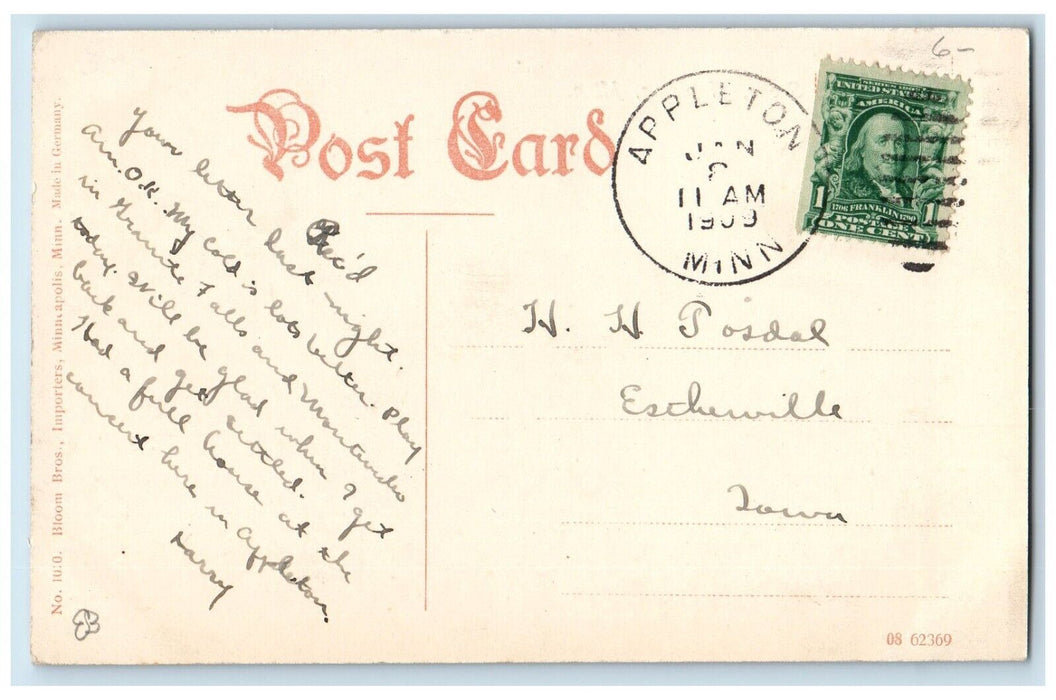 6-
Post Card
APPLETON
JAN
11 AM
1909
MINN
SERIES 1902
UNITED STATES OF
AMERICA
1 1
1706 FRANKLIN 1790
POSTAGE
ONE CENT
Your letter Rec'd last night.
Am O.K. My cold is lots better. Play
in Granite Falls and Montevideo
today. Will be glad when I get
back and get settled.
Had a full house at the
concert here in Appleton.
Harry
H. H Posdal
Estherville
Iowa
No. 1010. Bloom Bros., Importers, Minneapolis, Minn. Made in Germany.
08 62369